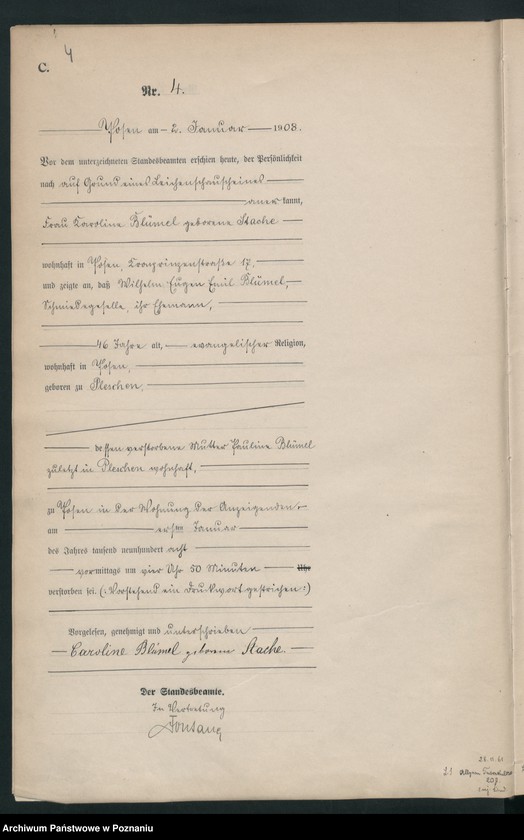 4
C.
Nr. 4.
Posen am 2. Januar 1908.
Vor dem unterzeichneten Standesbeamten erschien heute, der Persönlichkeit
nach auf Grund eines Leichenschauscheines
anerkannt,
Frau Karoline Blümel geborene Stache
wohnhaft in Posen, Kronprinzenstraße 17,
und zeigte an, daß Wilhelm Eugen Emil Blümel,
Schmiedegeselle, ihr Ehemann,
46 Jahre alt, evangelischer Religion,
wohnhaft in Posen,
geboren zu Pleschen,
dessen verstorbene Mutter Pauline Blümel
zuletzt in Pleschen wohnhaft,
zu Posen in der Wohnung der Anzeigenden
am ersten Januar
des Jahres tausend neunhundert acht
vormittags um vier Uhr 50 Minuten Uhr
verstorben sei. (: Vorstehend ein Druckwort gestrichen :)
Vorgelesen, genehmigt und unterschrieben
Caroline Blümel geborene Stache.
Der Standesbeamte.
In Vertretung
Archiwum Państwowe w Poznaniu